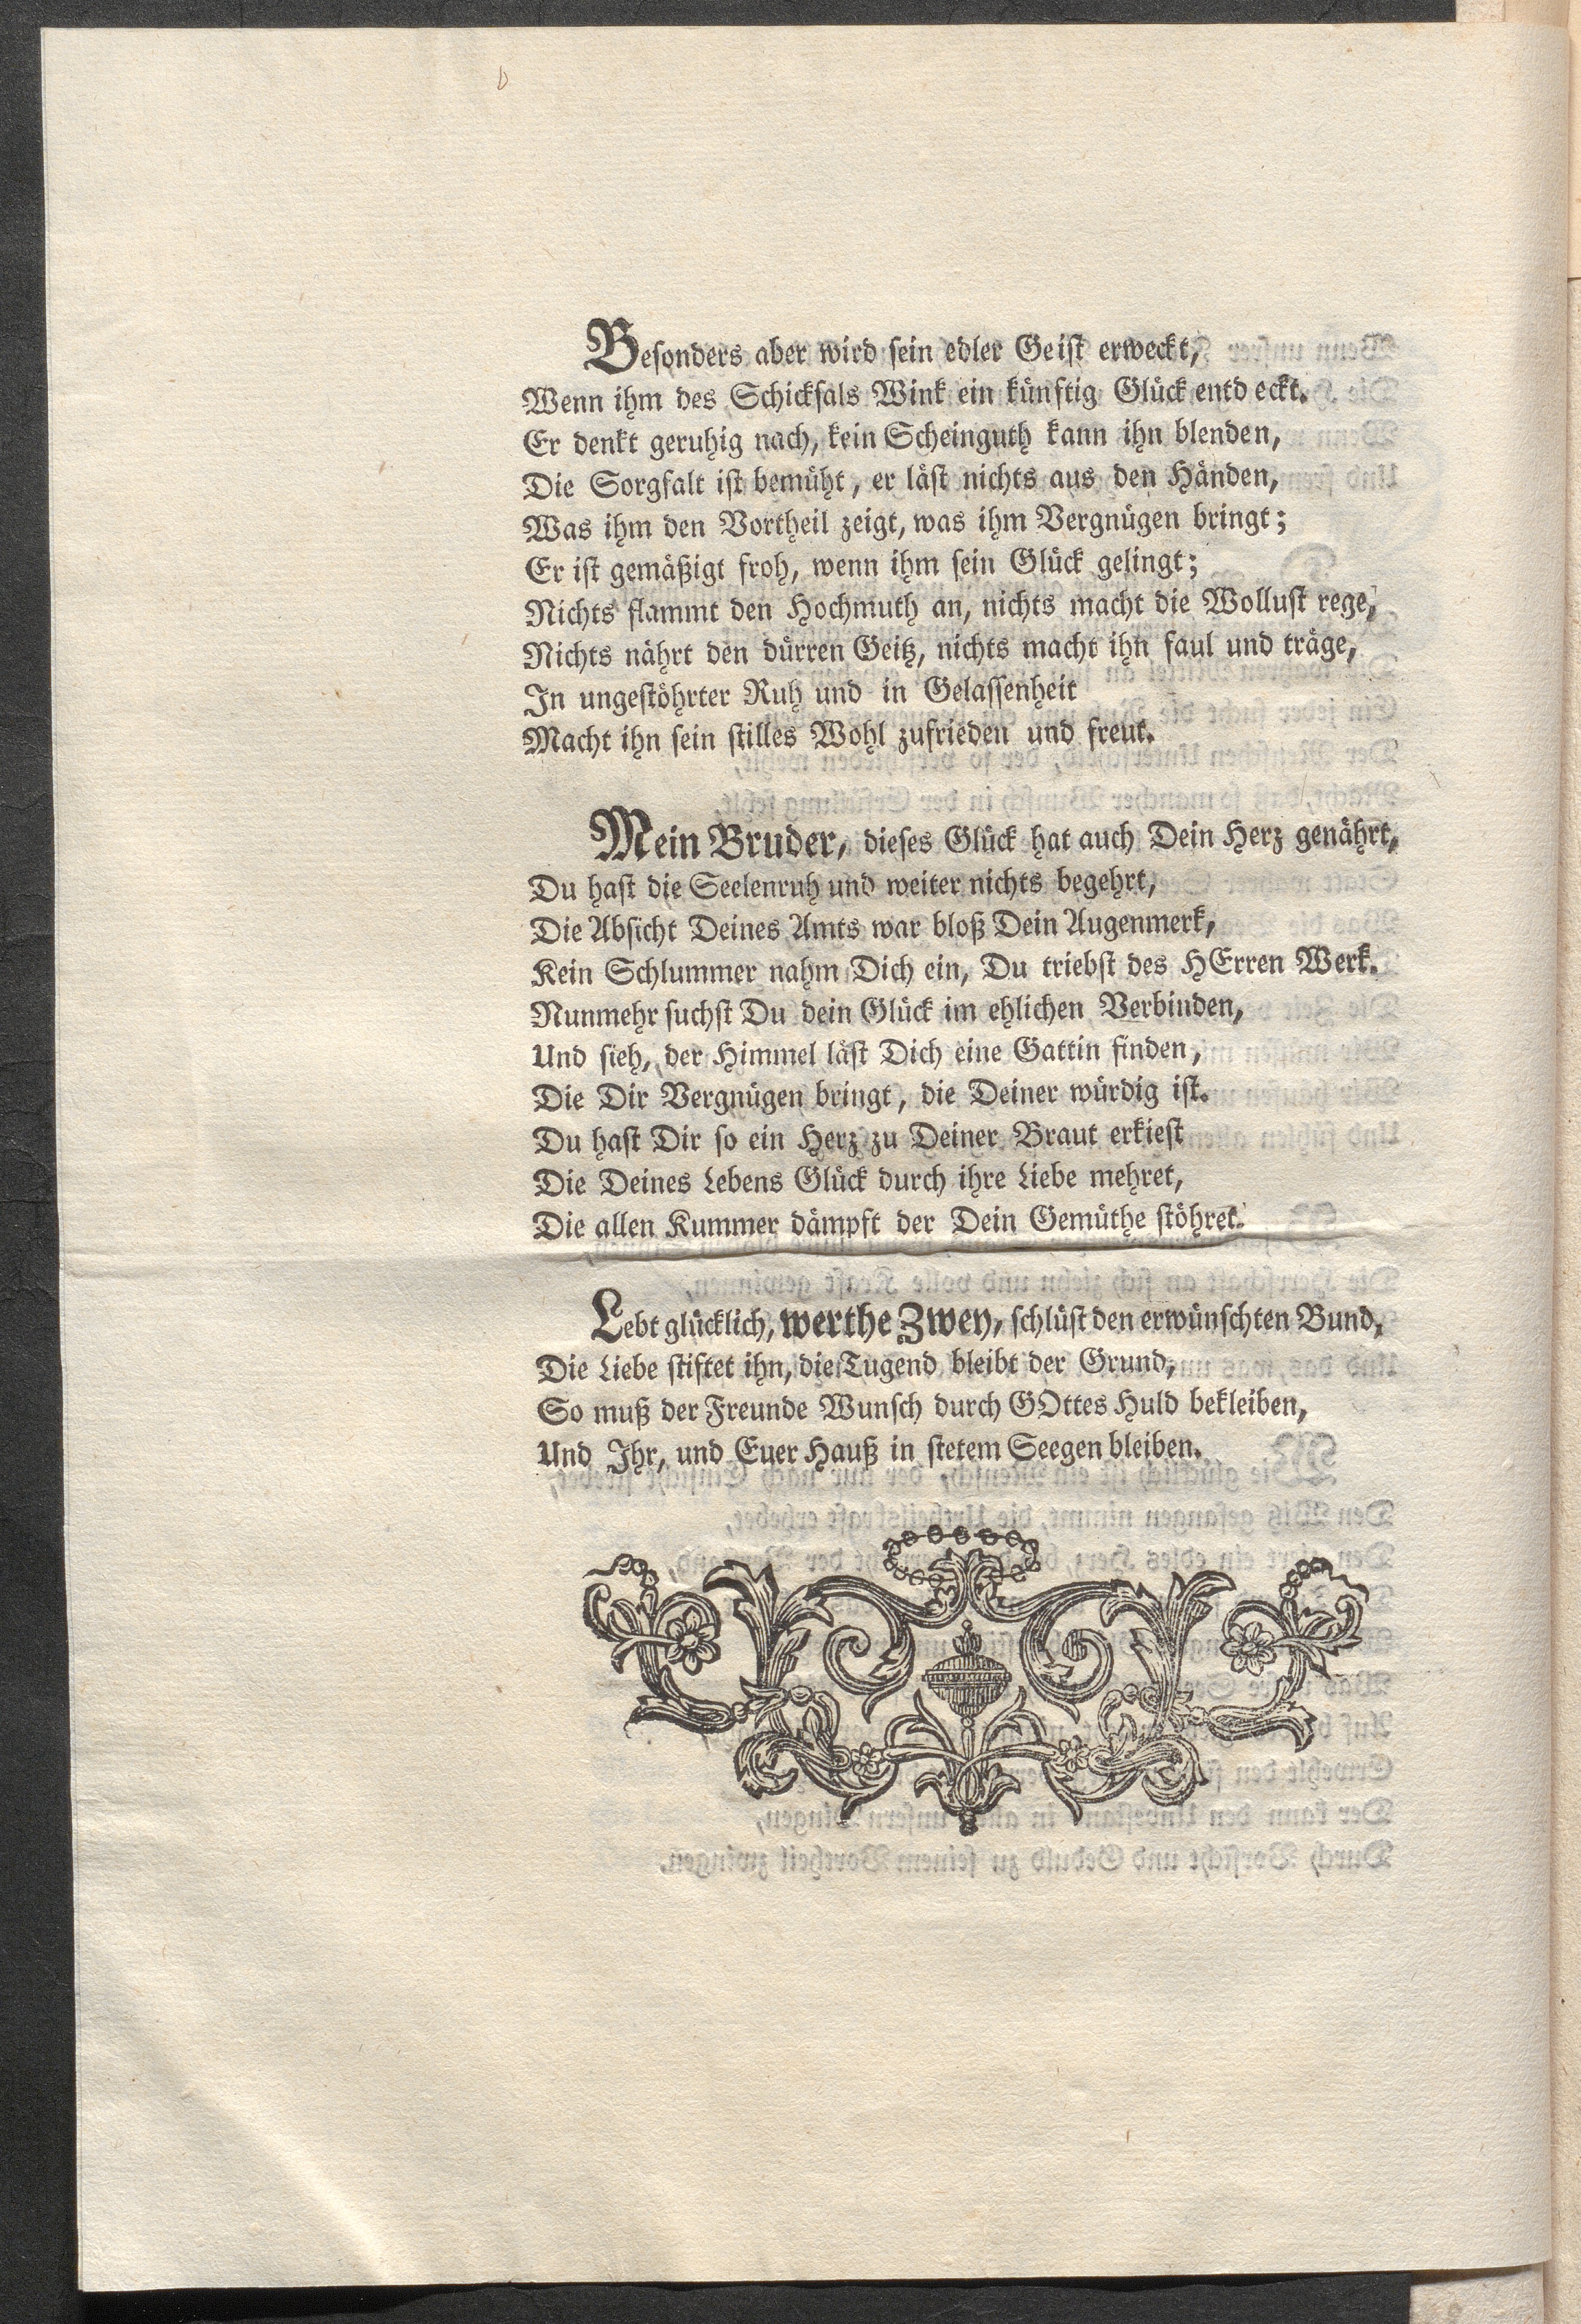 Besonders aber wird sein edler Geist erweckt,
Wenn ihm des Schicksals Wink ein künftig Glück entd eckt.
Er denkt geruhig nach, kein Scheinguth kann ihn blenden,
Die Sorgfalt ist bemüht, er läst nichts aus den Händen,
Was ihm den Vortheil zeigt, was ihm Vergnügen bringt;
Er ist gemäßigt froh, wenn ihm sein Glück gelingt;
Nichts flammt den Hochmuth an, nichts macht die Wollust rege,
Nichts nährt den dürren Geitz, nichts macht ihn faul und träge,
In ungestöhrter Ruh und in Gelassenheit
Macht ihn sein stilles Wohl zufrieden und freut.
Mein Bruder, dieses Glück hat auch Dein Herz genährt,
Du hast die Seelenruh und weiter nichts begehrt,
Die Absicht Deines Amts war bloß Dein Augenmerk,
Kein Schlummer nahm Dich ein, Du triebst des HErren Werk.
Nunmehr suchst Du dein Glück im ehlichen Verbinden,
Und sieh, der Himmel läst Dich eine Gattin finden,
Die Dir Vergnügen bringt, die Deiner würdig ist.
Du hast Dir so ein Herz zu Deiner Braut erkiest
Die Deines Lebens Glück durch ihre Liebe mehret,
Die allen Kummer dämpft der Dein Gemüthe stöhret.
Lebt glücklich, werthe Zwey, schlüst den erwünschten Bund,
Die Liebe stiftet ihn, die Tugend bleibt der Grund,
So muß der Freunde Wunsch durch GOttes Huld bekleiben,
Und Ihr, und Euer Hauß in stetem Seegen bleiben.